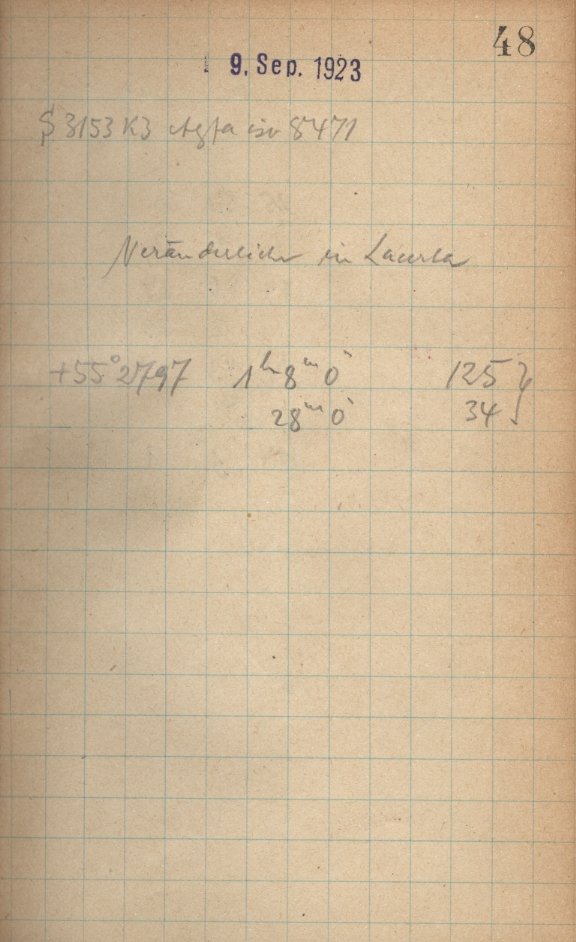 48
9. Sep. 1923
S 3153 K3 Agfa iso 8471
Veränderliche in Lacerta
+55° 2797 1ʰ 8ᵐ 0ˢ 125 }
28ᵐ 0ˢ 34